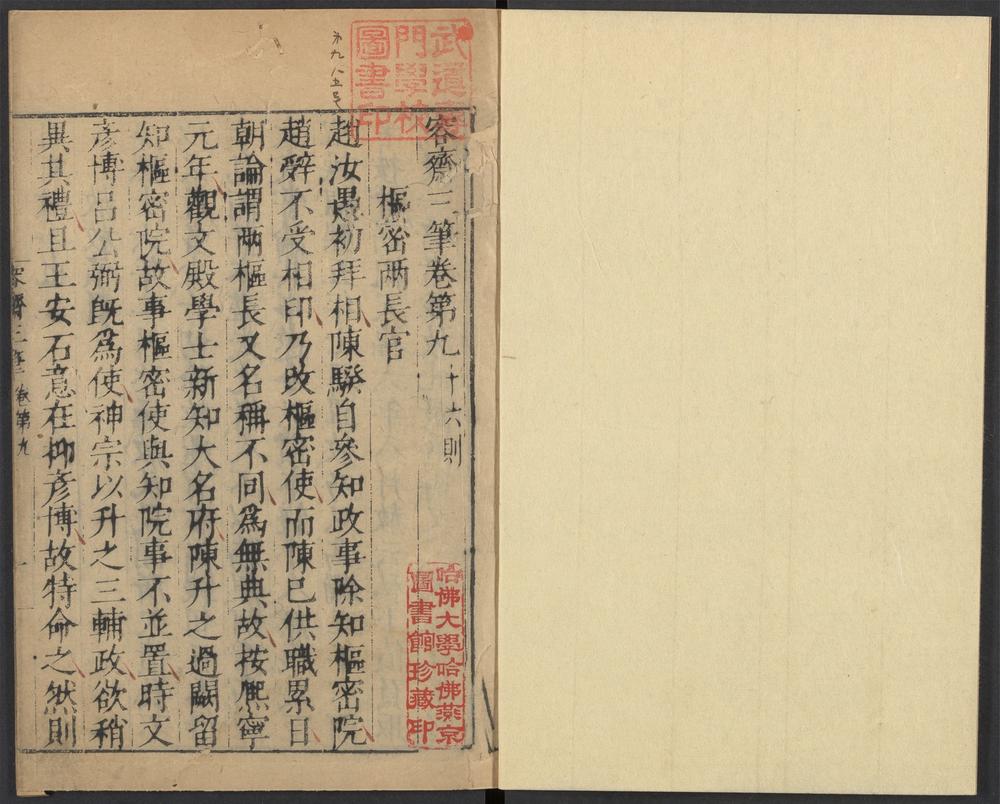 容齋三筆卷第九 十六則
樞密兩長官
趙汝愚初拜相陳騤自參知政事除知樞密院
趙辭不受相印乃改樞密使而陳已供職累日
朝論謂兩樞長又名稱不同爲無典故按熙寧
元年觀文殿學士新知大名府陳升之過闕留
知樞密院故事樞密使與知院事不並置時文
彥博呂公弼旣爲使神宗以升之三輔政欲稍
異其禮且王安石意在抑彥博故特命之然則
容齋三筆 卷第九
第九八五号
武道專
門學校
圖書印
哈佛大學哈佛燕京
圖書館珍藏印